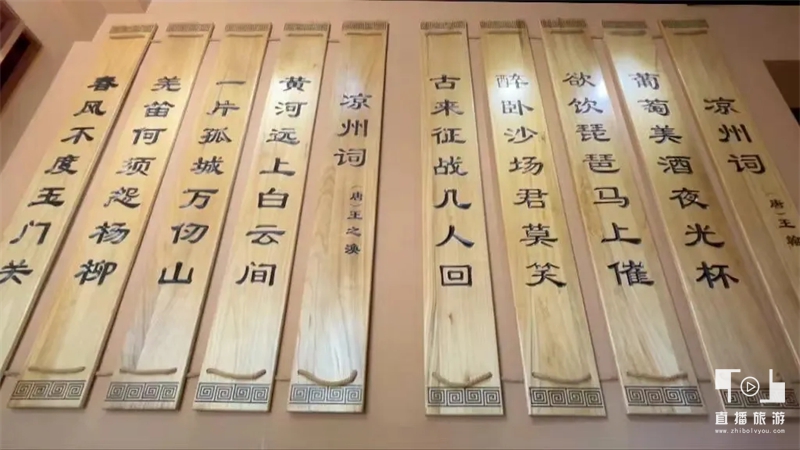 凉州词
(唐)王翰
葡萄美酒夜光杯
欲饮琵琶马上催
醉卧沙场君莫笑
古来征战几人回
凉州词
(唐)王之涣
黄河远上白云间
一片孤城万仞山
羌笛何须怨杨柳
春风不度玉门关
直播旅游
www.zhibolvyou.com